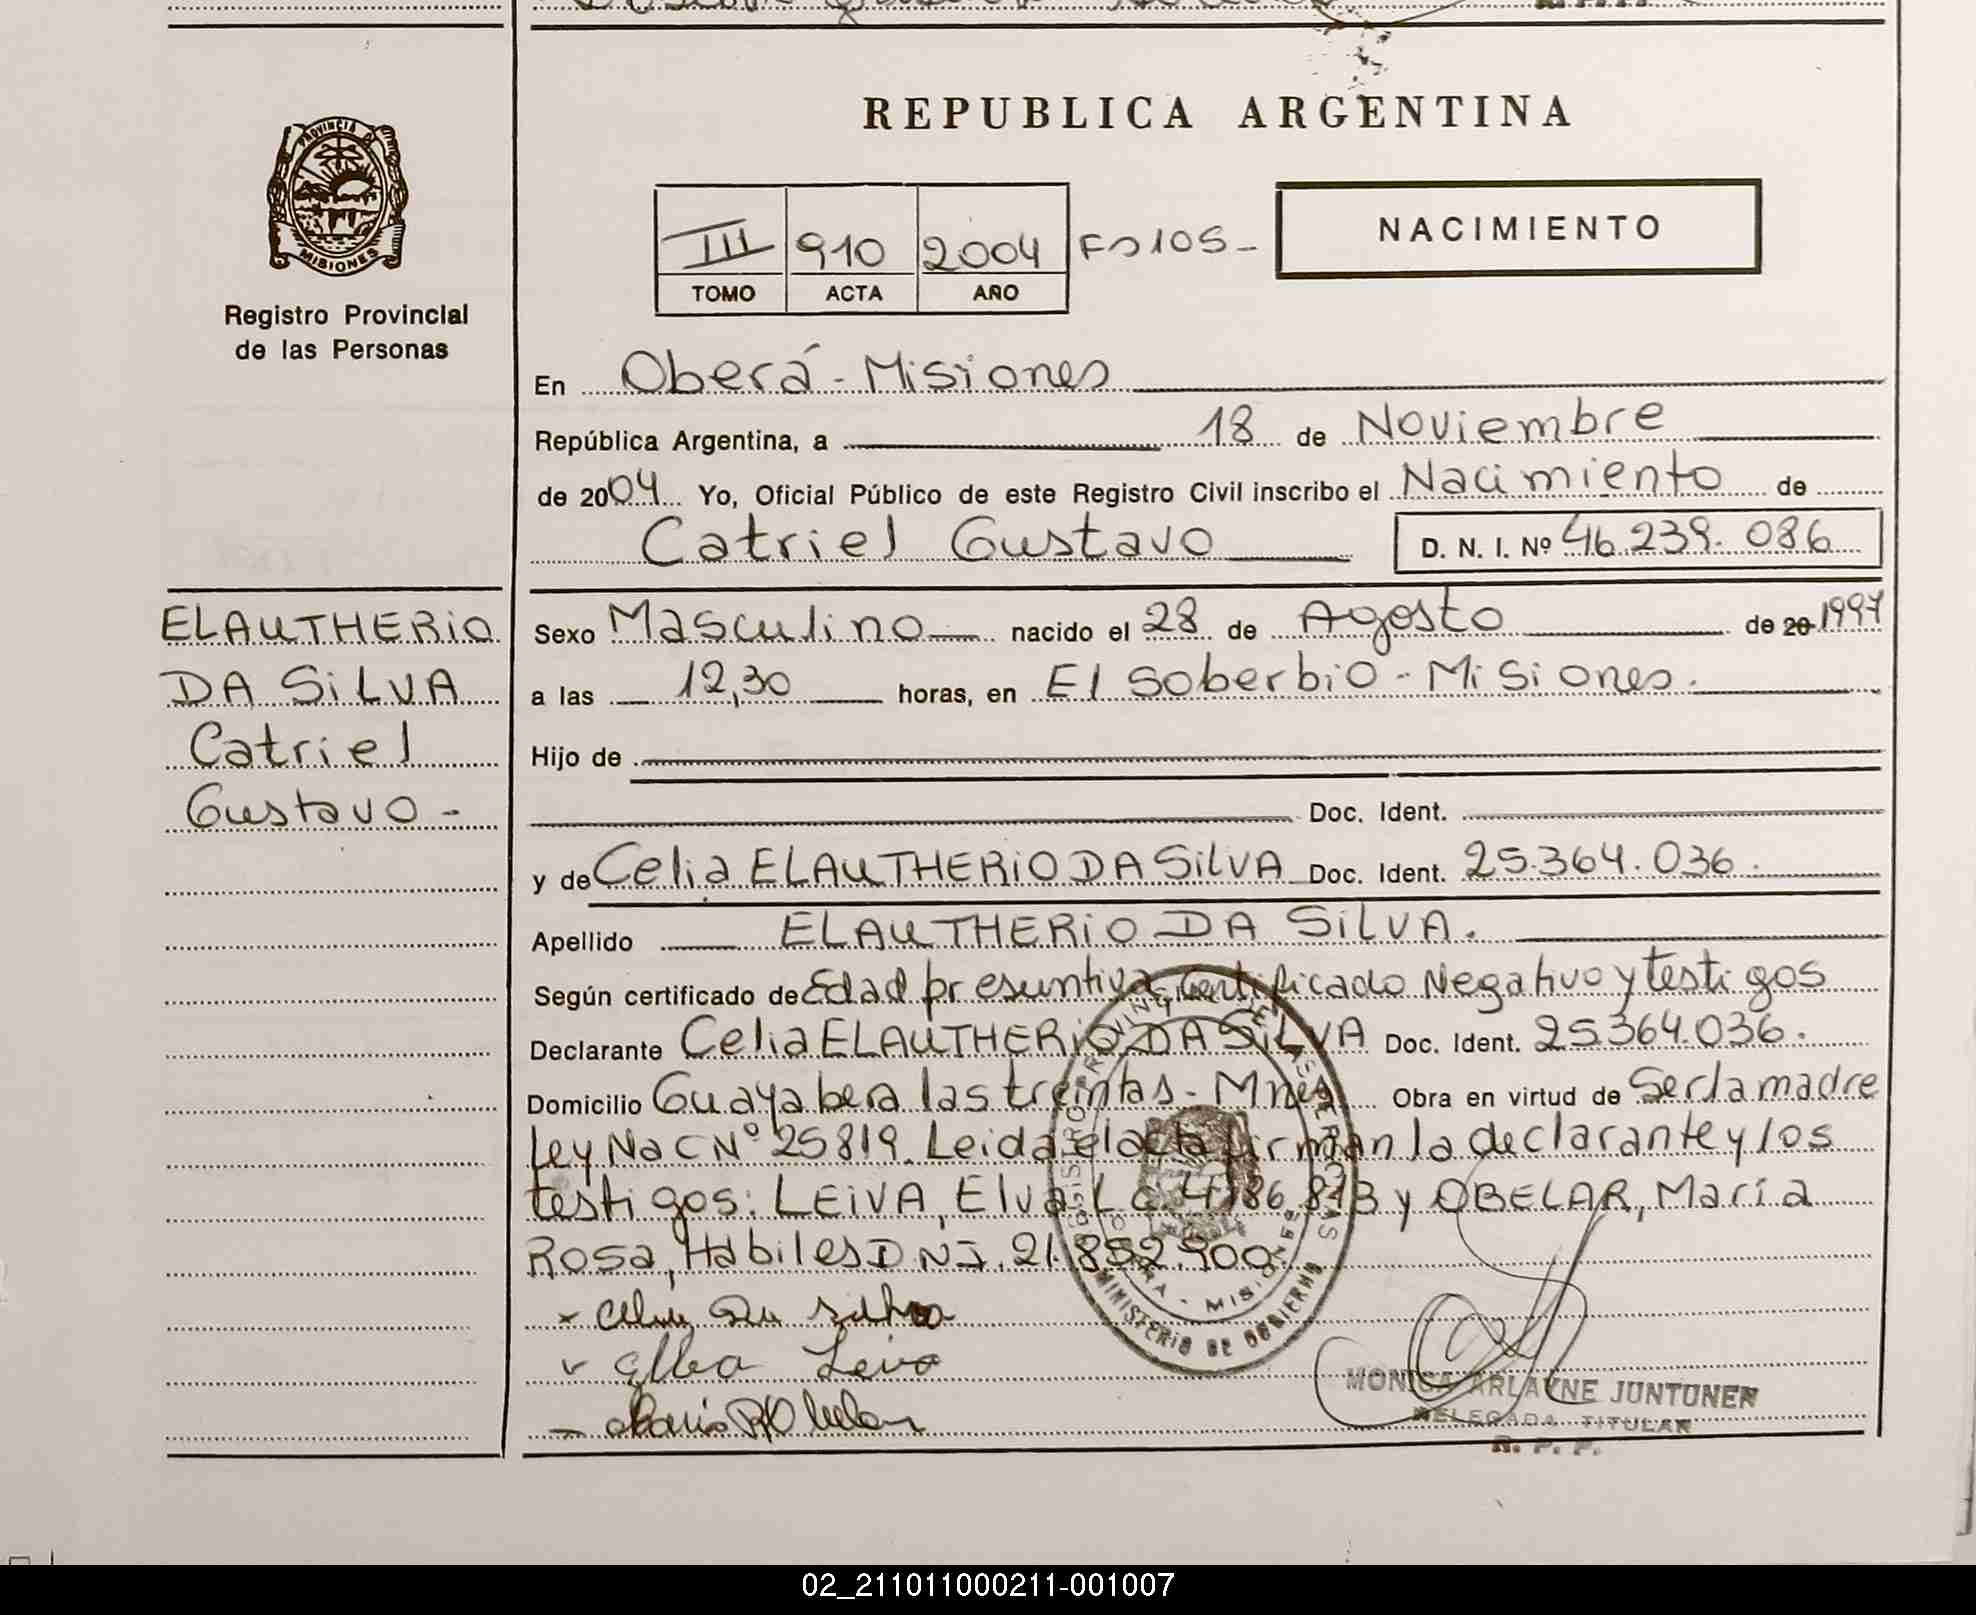 REPUBLICA ARGENTINA
PROVINCIA DE
MISIONES
Registro Provincial
de las Personas
III 910 2004 Fº 105-
TOMO ACTA AÑO
NACIMIENTO
En Oberá - Misiones
República Argentina, a 18 de Noviembre
de 2004 Yo, Oficial Público de este Registro Civil inscribo el Nacimiento de
Catriel Gustavo D. N. I. Nº 46.239.086
ELAUTHERIO
DA SiLVA
Catriel
Gustavo -
Sexo Masculino nacido el 28 de Agosto de 20 1997
a las 12,30 horas, en El Soberbio - Misiones.
Hijo de
Doc. Ident.
y de Celia ELAUTHERiO DA SiLVA Doc. Ident. 25.364.036.
Apellido ELAUTHERiO DA SiLVA.
Según certificado de Edad presuntiva, Certificado Negativo y testigos
Declarante Celia ELAUTHERiO DA SiLVA Doc. Ident. 25.364.036.
Domicilio Guayabera las treintas - Mnes Obra en virtud de Ser la madre
Ley Nac Nº 25819. Leida el acta firman la declarante y los
testigos: LEiVA, Elva L.C. 4.186.873 y OBELAR, María
Rosa, Habiles D N I. 21.852.900
Elba Leiva
MINISTERIO DE GOBIERNO
MONICA ARLAYNE JUNTUNEN
DELEGADA TITULAR
R. P. P.
02_211011000211-001007